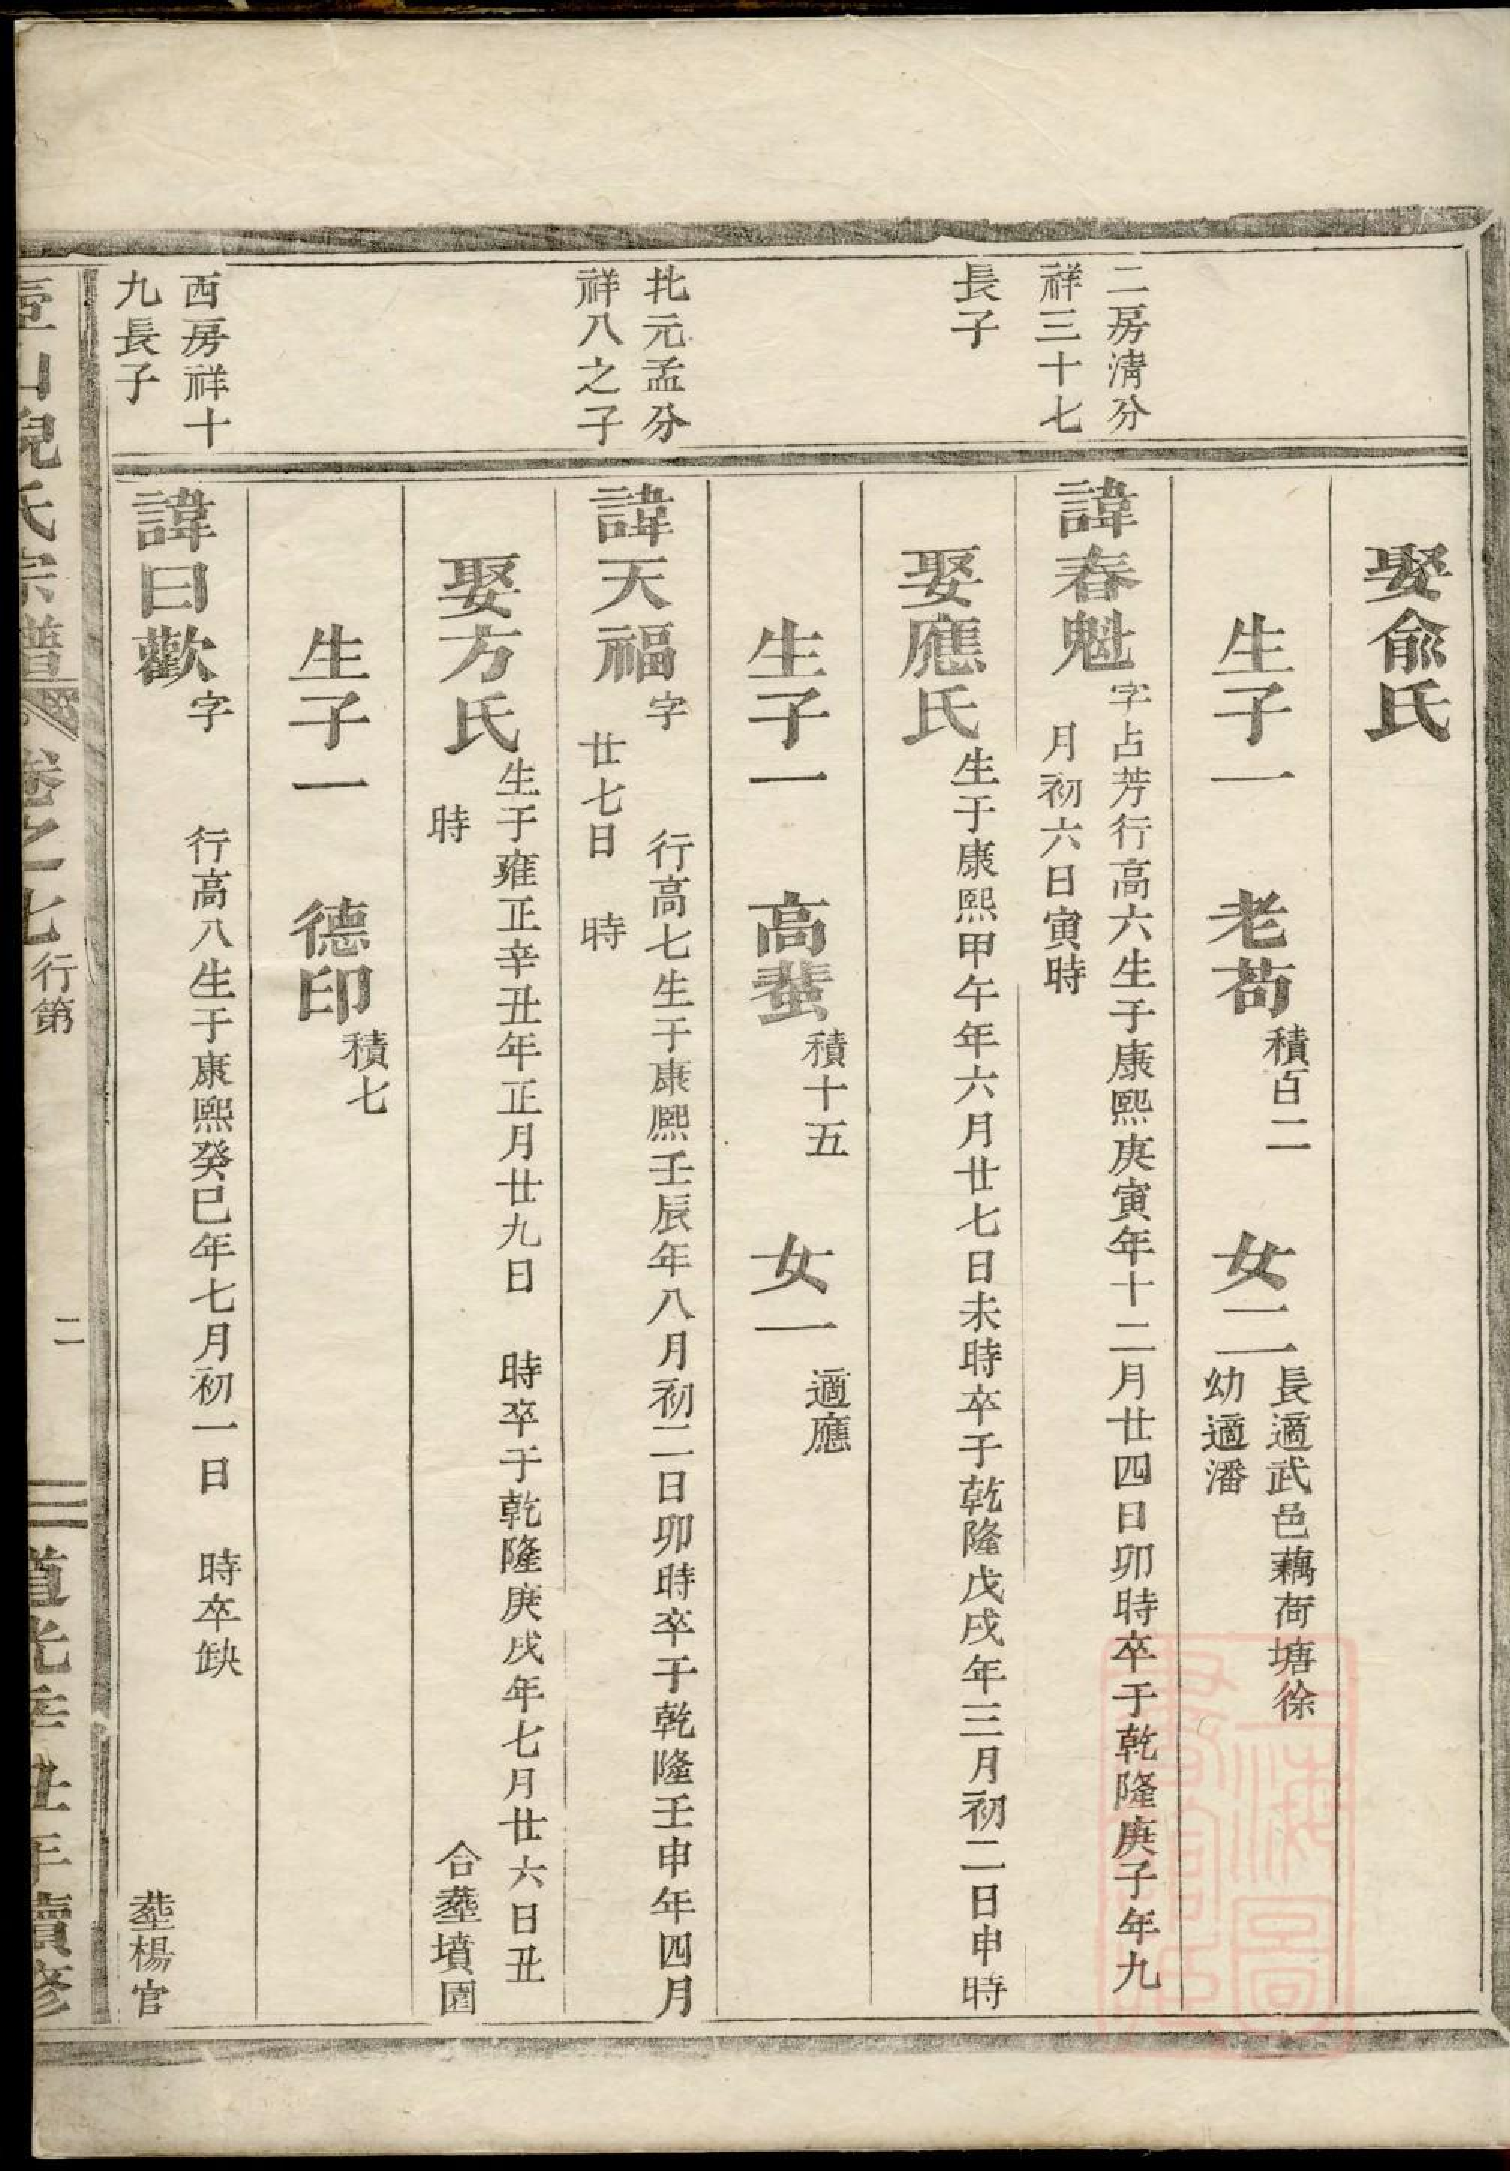 娶俞氏
生子一 老苟積百二 女二長適武邑藕荷塘徐
幼適潘
二房淸分
祥三十七
長子
諱春魁字占芳行高六生于康熙庚寅年十二月廿四日卯時卒于乾隆庚子年九
月初六日寅時
娶應氏生于康熙甲午年六月廿七日未時卒于乾隆戊戌年三月初二日申時
生子一 高蜚積十五 女一 適應
北元孟分
祥八之子
諱天福字 行高七生于康熙壬辰年八月初二日卯時卒于乾隆壬申年四月
廿七日 時
娶方氏生于雍正辛丑年正月廿九日 時卒于乾隆庚戌年七月廿六日丑
時 合塟墳園
生子一 德印積七
西房祥十
九長子
諱曰歡字 行高八生于康熙癸巳年七月初一日 時卒缺
塟楊官
壺山倪氏宗譜 卷之七行第 二 道光辛丑年續修
上海圖
書館藏